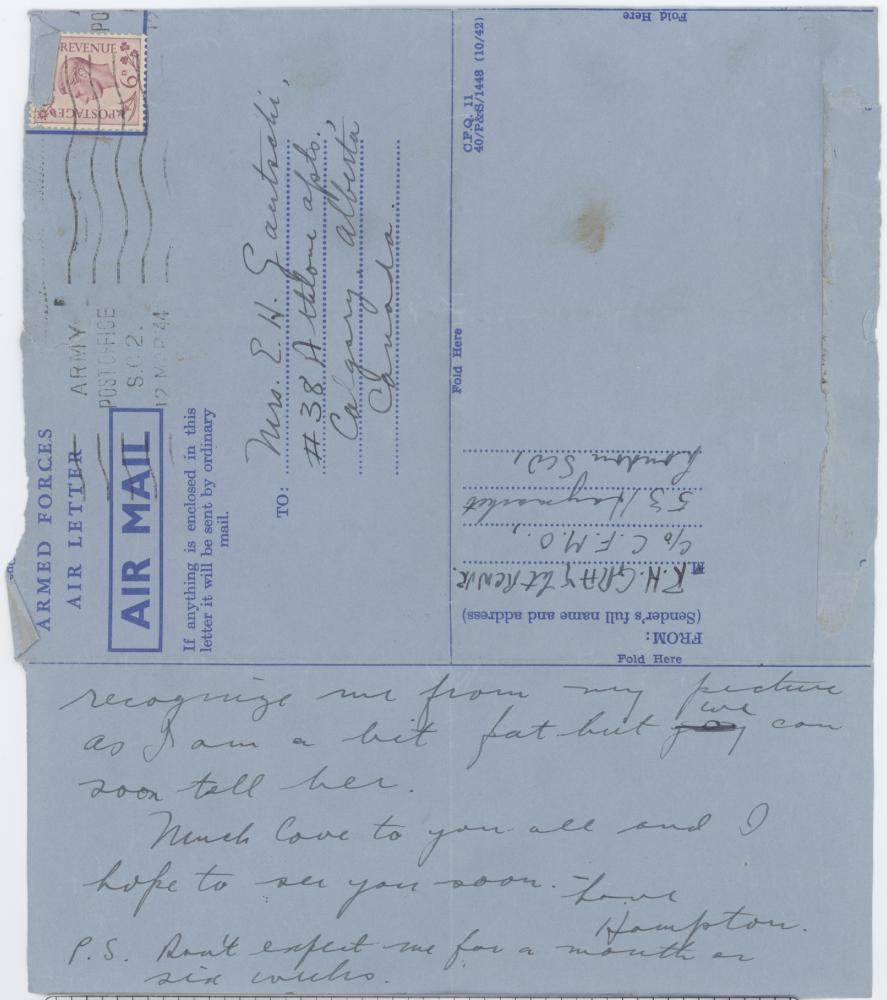 ARMED FORCES
AIR LETTER
AIR MAIL
If anything is enclosed in this
letter it will be sent by ordinary
mail.
REVENUE
6D
POSTAGE
ARMY
POST OFFICE
S.C.2.
12 MAR 44
PO
TO:
Mrs. E. H. Gautschi,
#38 Athlone apts.,
Calgary, Alberta
Canada.
Fold Here
C.F.Q. 11
40/P&S/1448 (10/42)
Fold Here
FROM:
(Sender's full name and address)
R.H. GRAY Lt RCNVR
c/o C.F.M.O.,
53 Haymarket
London SW1
Fold Here
recognize me from my picture
as I am a bit fat but we can
soon tell her.
Much love to you all and I
hope to see you soon. Love
Hampton.
P.S. Don't expect me for a month or
six weeks.